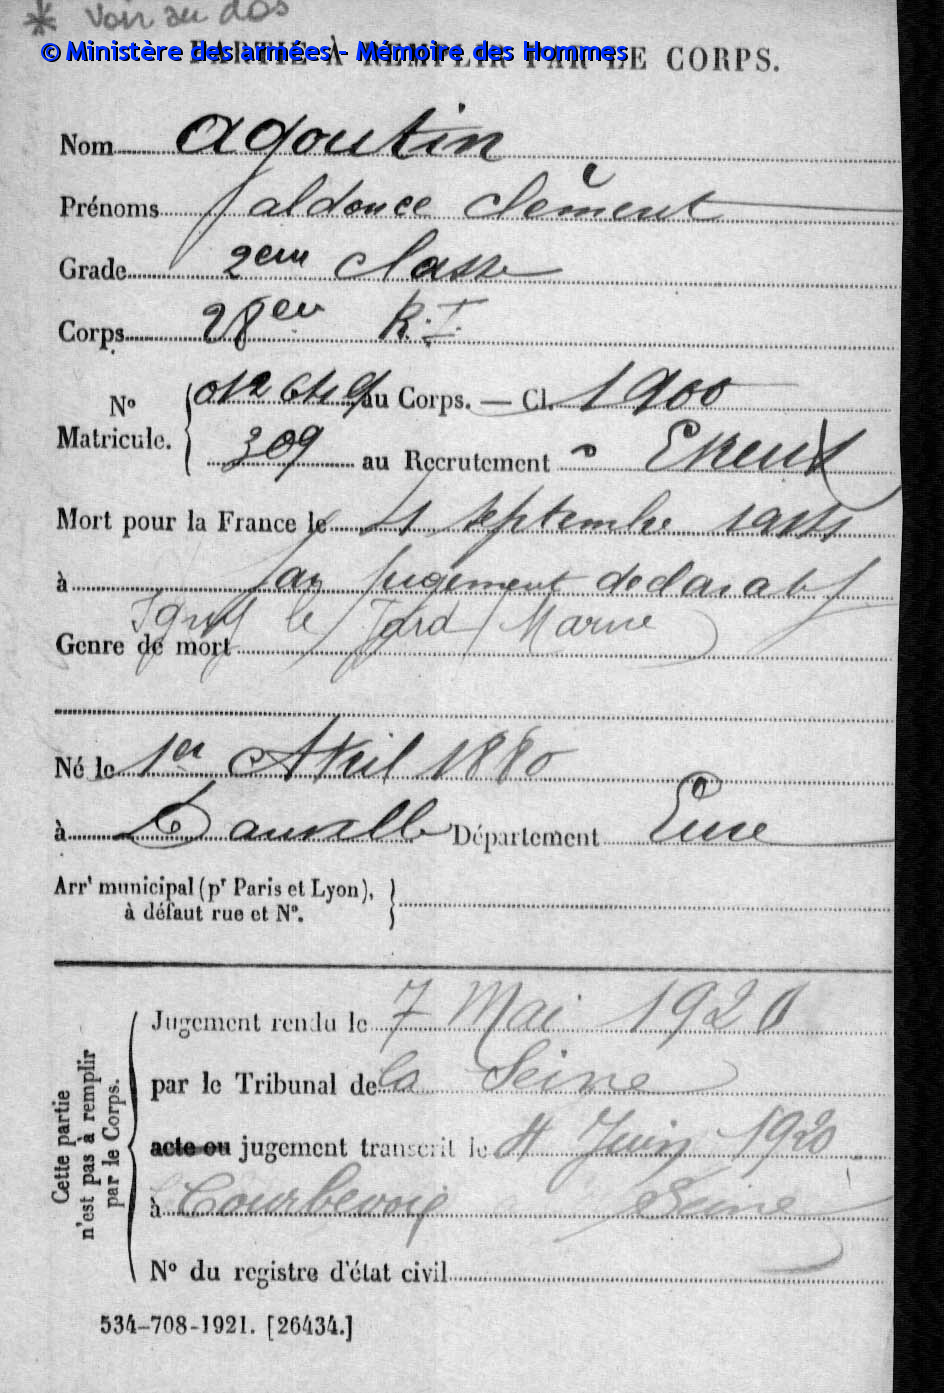 * Voir au dos
© Ministère des armées - Mémoire des Hommes
PARTIE À REMPLIR PAR LE CORPS.
Nom Agoutin
Prénoms aldonce Clément
Grade 2eme classe
Corps 28eme R.I.
No Matricule. au Corps. — Cl. 1900
309 au Recrutement Evreux
Mort pour la France le 4 septembre 1914
à par jugement declaratif
Igny le Jard Marne
Genre de mort
Né le 1er Avril 1880
à Damville Département Eure
Arrt municipal (pr Paris et Lyon),
à défaut rue et No.
Cette partie n'est pas à remplir par le Corps.
Jugement rendu le 7 Mai 1920
par le Tribunal de la Seine
acte ou jugement transcrit le 4 Juin 1920
à Courbevoie Seine
No du registre d'état civil
534-708-1921. [26434.]